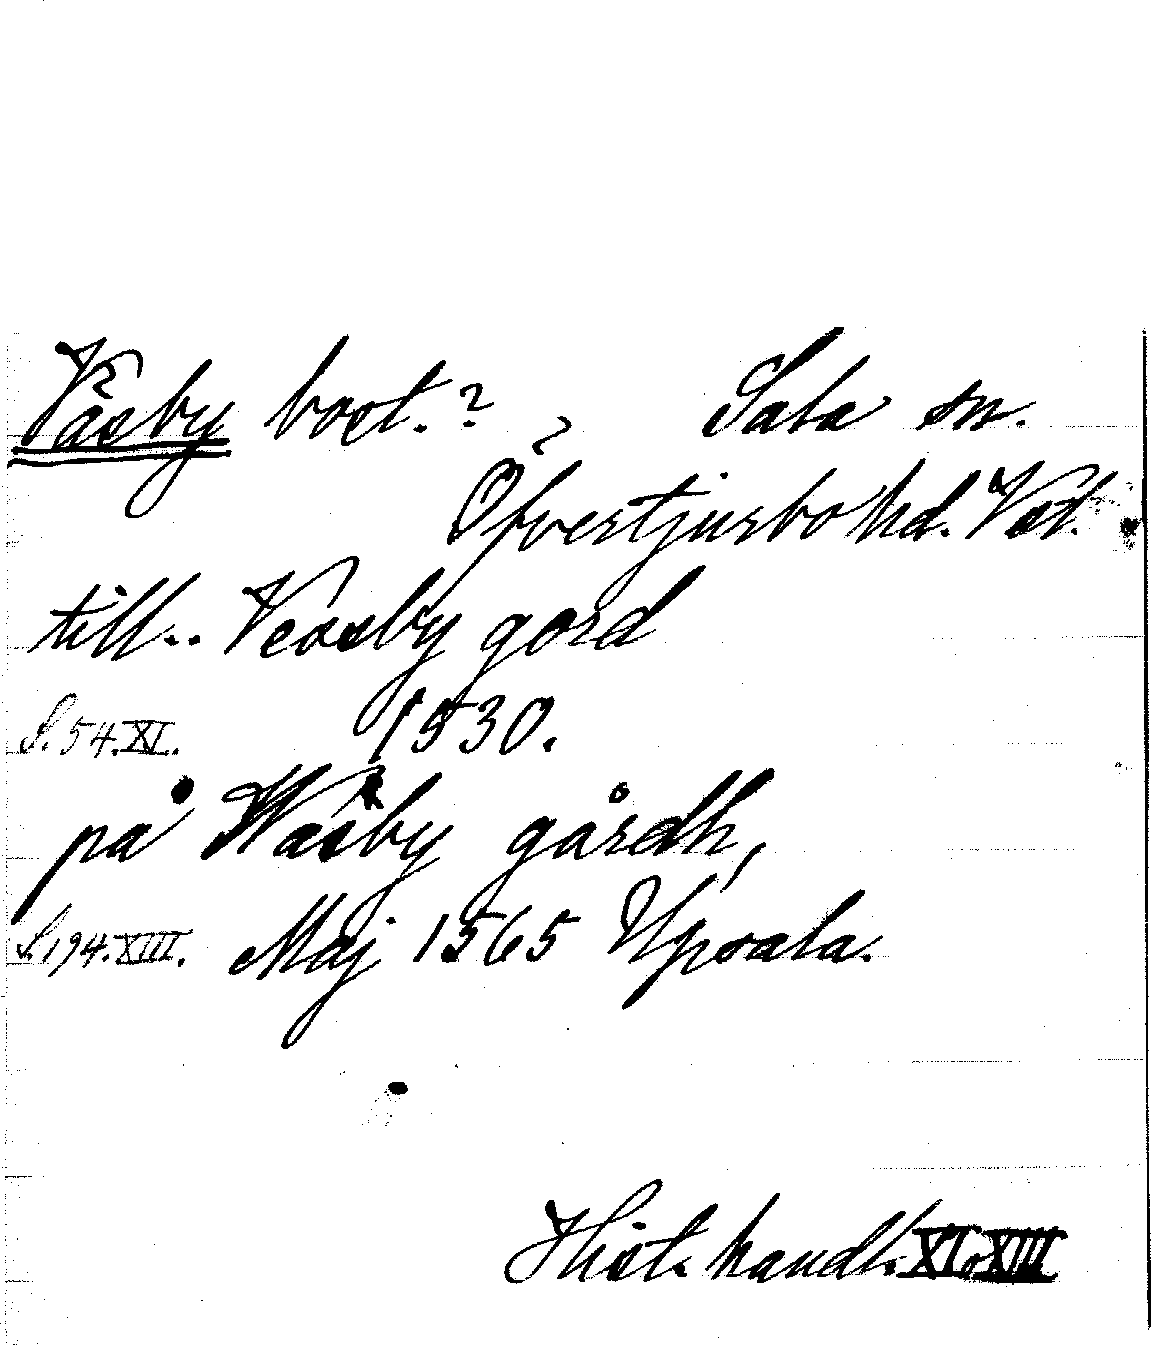 Väsby bost.? Sala sn.
Öfvertjurbo hd. Vstl.
till.. Veasby gord
S. 54. XI. 1530.
på Wäsby gårdh,
S. 194. XIII. Maj 1565 Upsala.
Hist. handl. XI o XIII